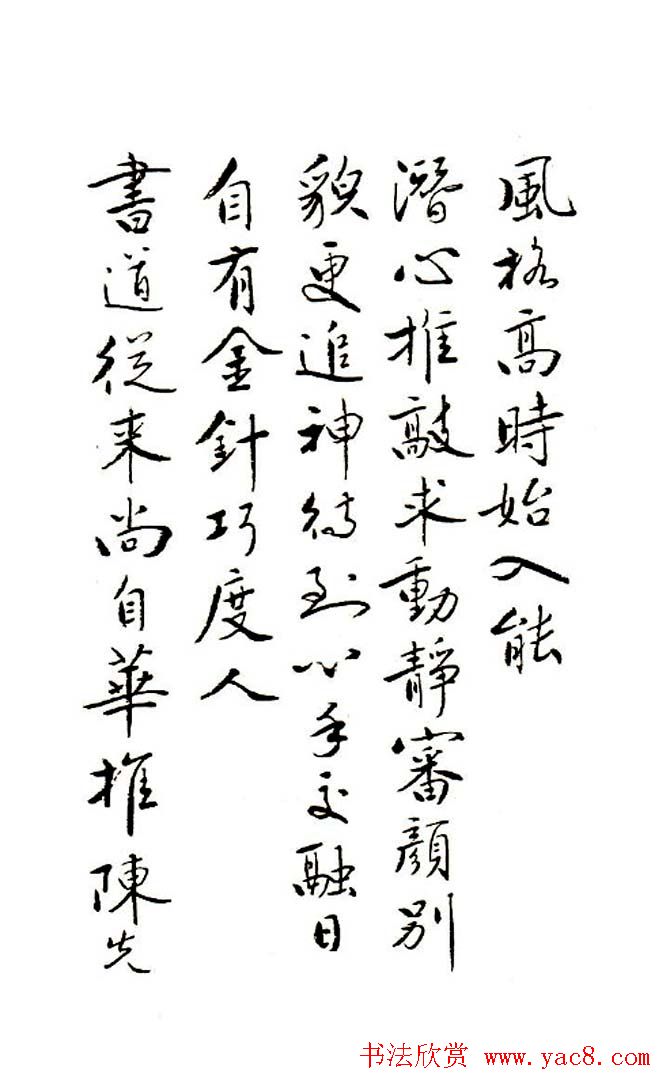 風格高時始入能
潛心推敲求動靜審顏別
貌更追神待到心手交融日
自有金針巧度人
書道從来尚自華推陳先
书法欣赏 www.yac8.com